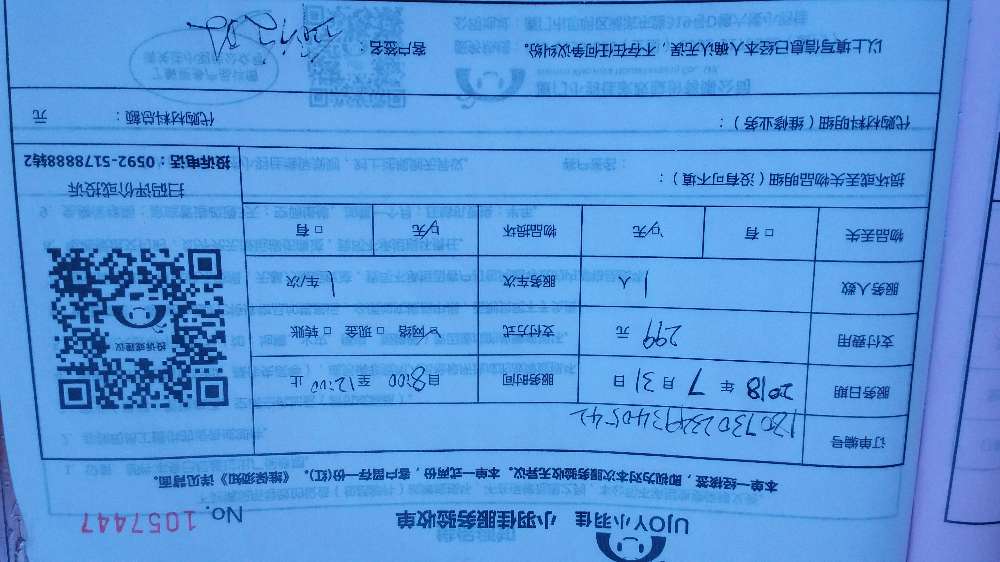 UJOY小羽佳 小羽佳服务验收单 No. 1057447
本单一经核签，即视为对本次服务验收无异议。本单一式两份，客户留存一份(红)。《维保须知》详见背面。
订单编号
服务日期 2018 年 7 月 31 日 服务时间 自8:00 至12:00 止
支付费用 299 元 支付方式 网络 □ 现金 □ 转账
服务人数 1 人 服务车次 1 车/次
物品丢失 □ 有 无 物品损坏 无 □ 有
投诉或建议
扫码评价或投诉
投诉电话：0592-5178888转2
损坏或丢失物品明细（没有可不填）：
代购材料明细（维修业务）： 代购材料总额： 元
以上填写信息已经本人确认无误，不存在任何争议纠纷。 客户签名：